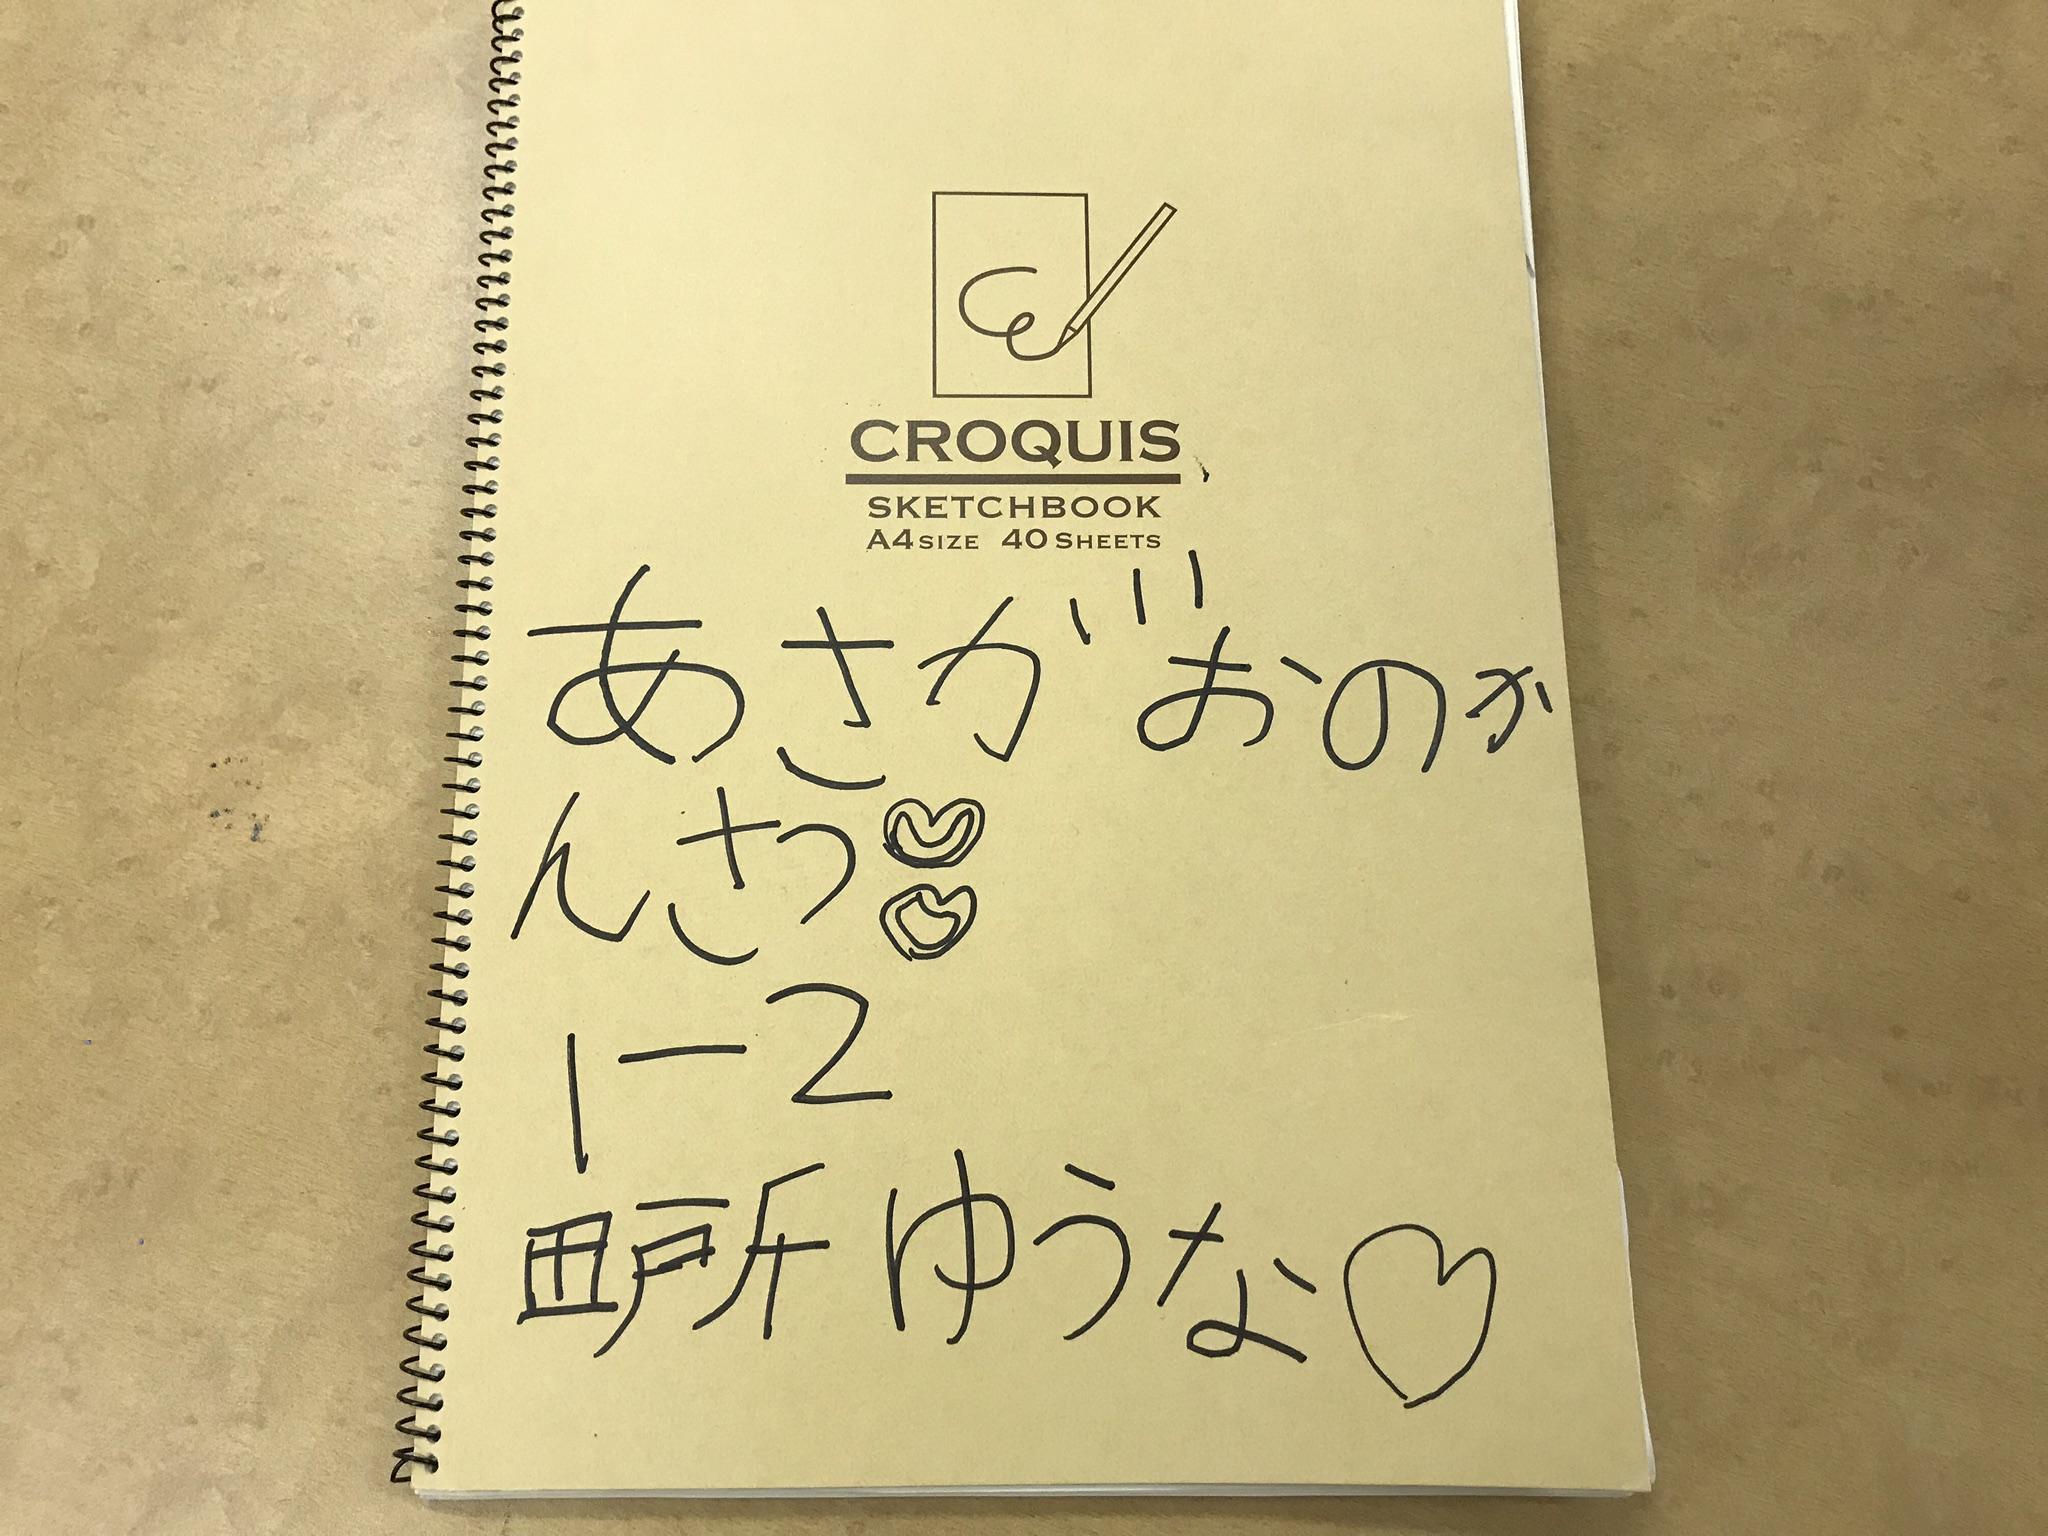 CROQUIS
SKETCHBOOK
A4 SIZE 40 SHEETS
あさがおのか
んさつ♡
♡
1-2
田所ゆうな♡